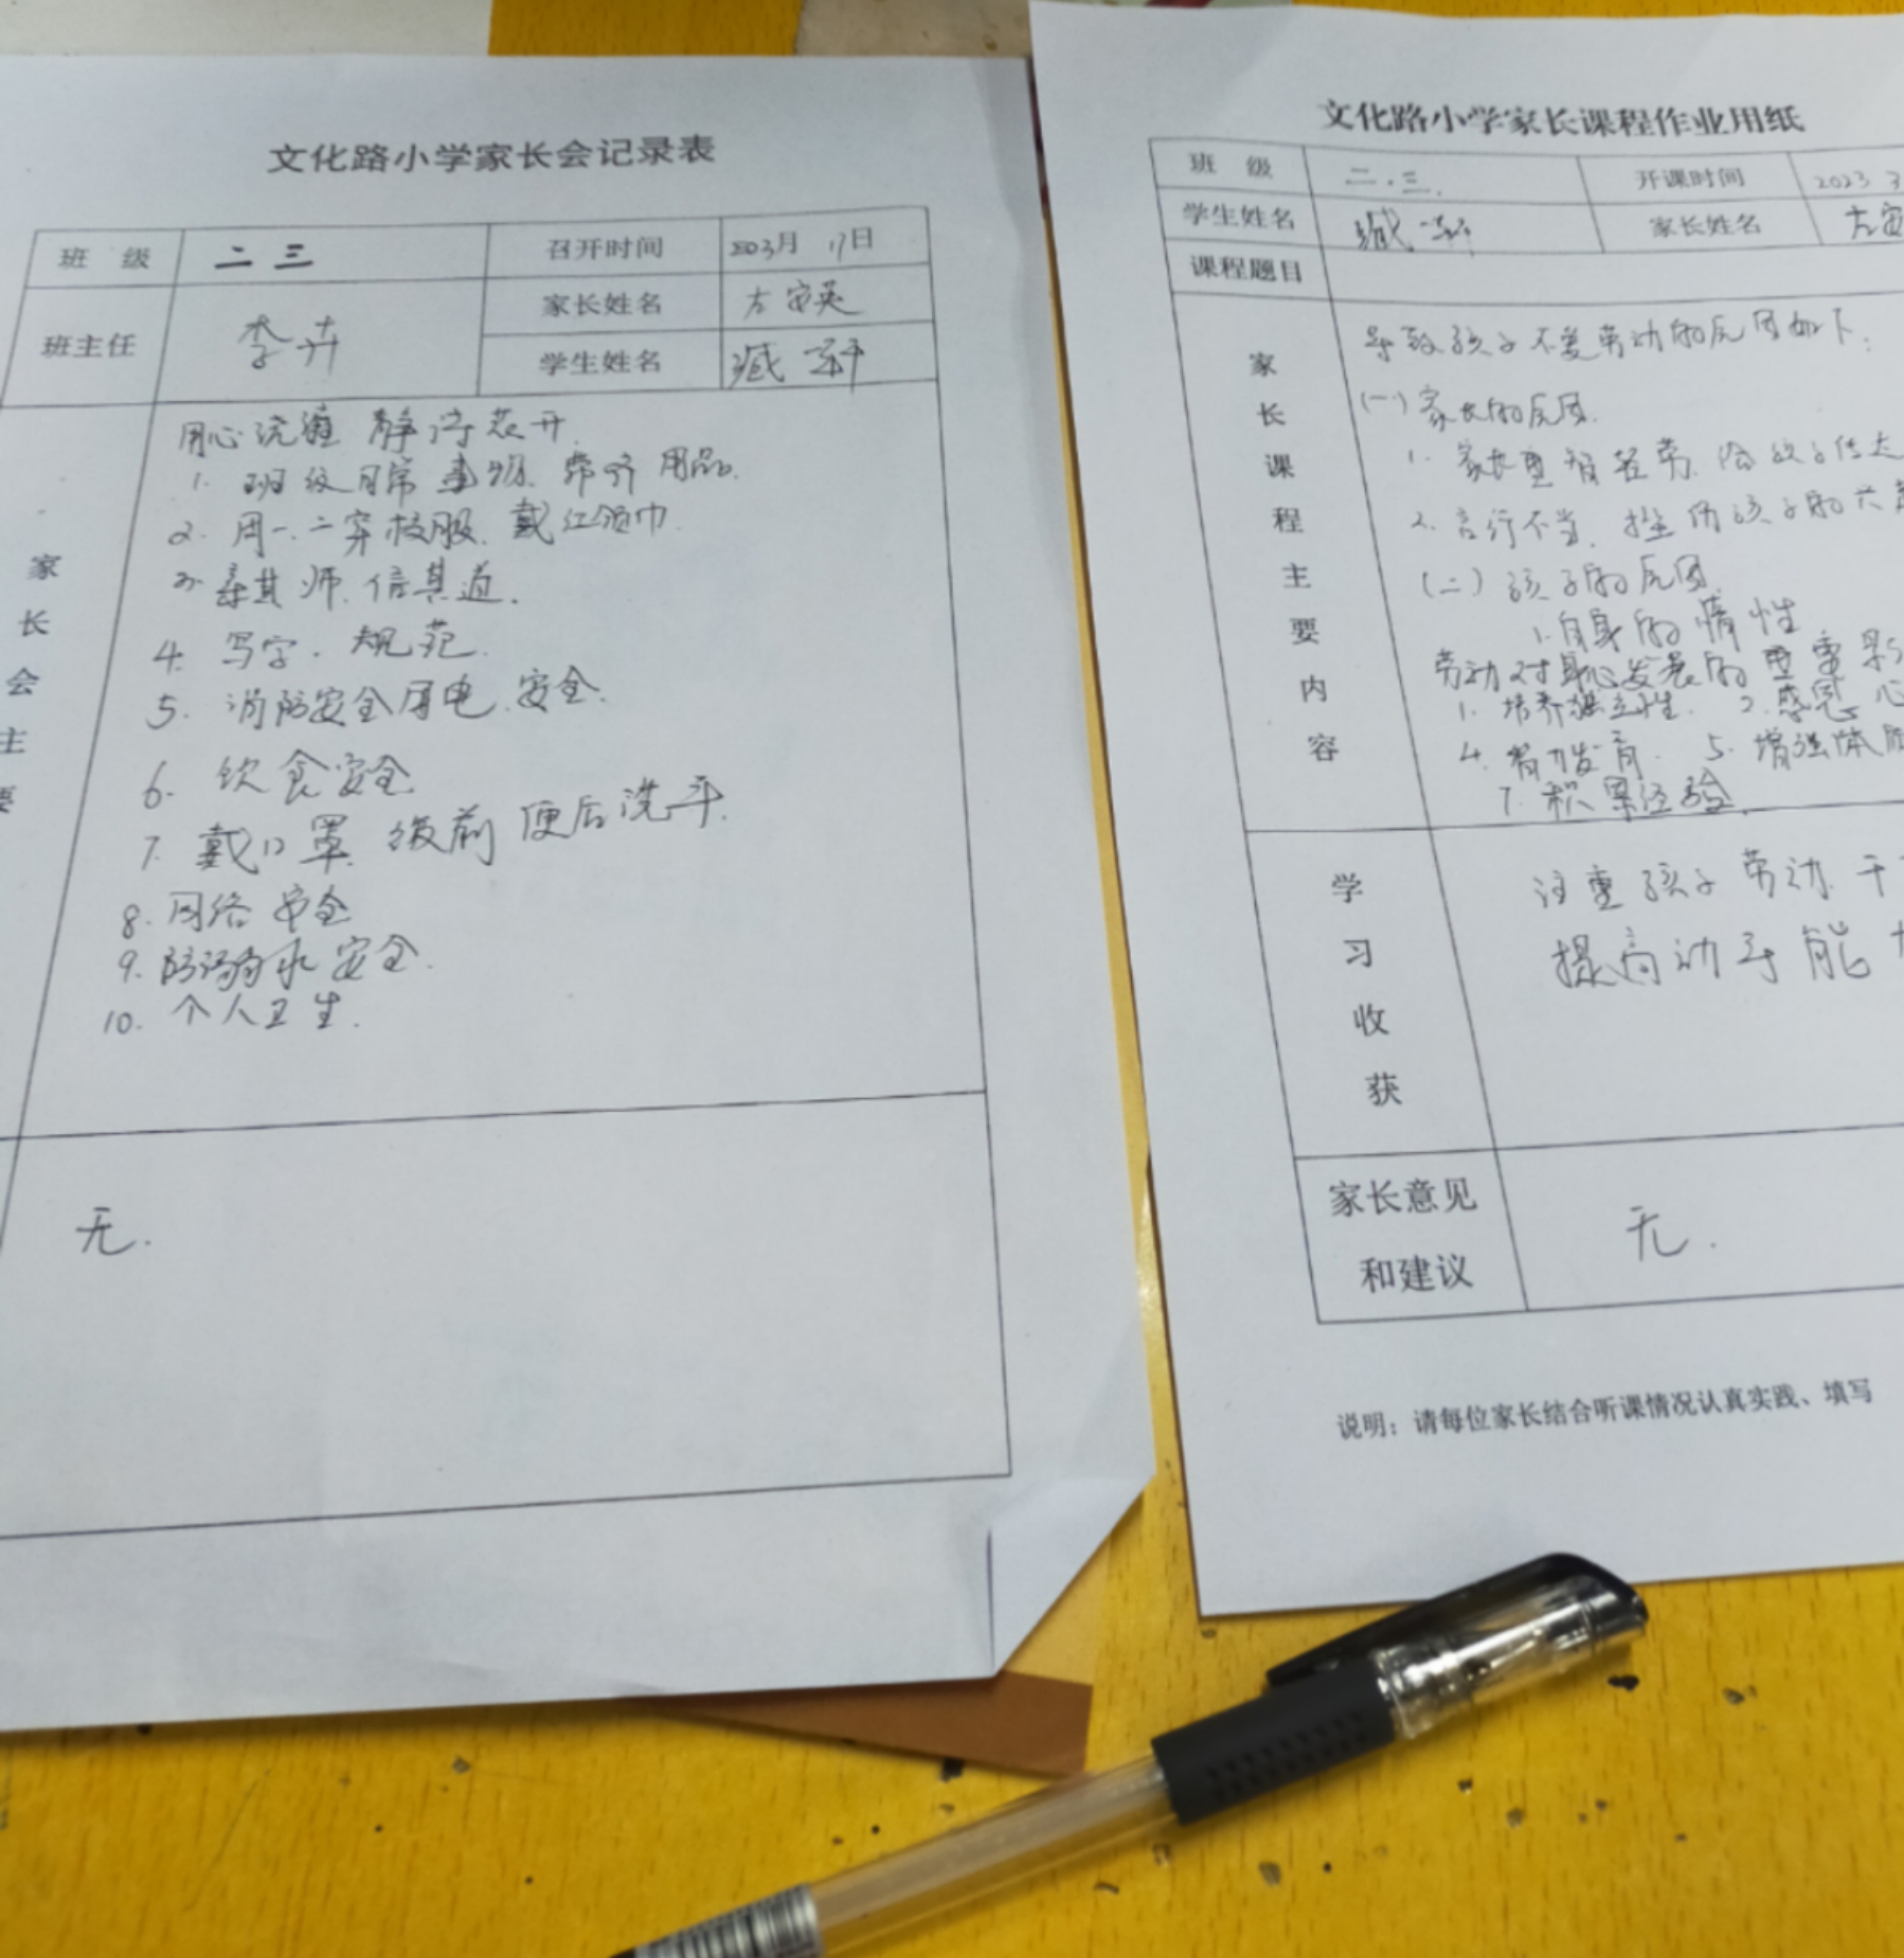 文化路小学家长会记录表
班 级 二 三 召开时间 3月 17日
班主任 李卉 家长姓名 左寅英
学生姓名 臧
家长会主要
用心浇灌 静待花开.
1. 班级日常事物. 带齐用品.
2. 周一.二穿校服. 戴红领巾.
3. 亲其师. 信其道.
4. 写字. 规范.
5. 消防安全用电.安全.
6. 饮食安全
7. 戴口罩. 饭前便后洗手.
8. 网络安全
9. 防溺水安全.
10. 个人卫生.
无.
文化路小学家长课程作业用纸
班 级 二.三. 开课时间 2023 3
学生姓名 臧 家长姓名 左寅
课程题目
家长课程主要内容
导致孩子不爱劳动的原因如下:
(一)家长的原因.
1. 家长重智轻劳. 给孩子传达
2. 言行不当. 挫伤孩子的
(二)孩子的原因.
1.自身的惰性
劳动对身心发展的重要影
1. 培养独立性. 2.感恩心
4. 智力发育. 5. 增强体质
7. 积累经验.
学习收获
注重孩子劳动.
提高动手能力
家长意见
和建议
无.
说明：请每位家长结合听课情况认真实践、填写